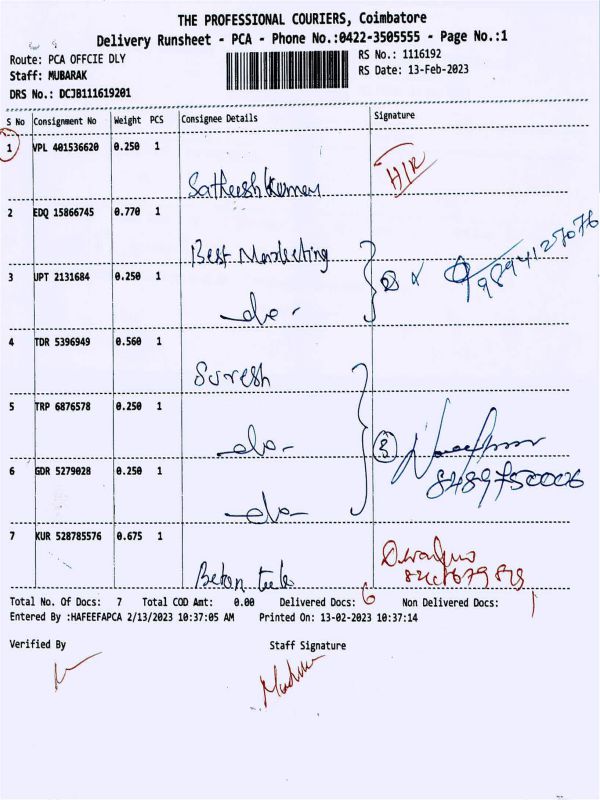 THE PROFESSIONAL COURIERS, Coimbatore
Delivery Runsheet - PCA - Phone No.:0422-3505555 - Page No.:1
Route: PCA OFFCIE DLY
RS No.: 1116192
Staff: MUBARAK
RS Date: 13-Feb-2023
DRS No.: DCJB111619201
S No Consignment No Weight PCS Consignee Details Signature
1 VPL 401536620 0.250 1
Satheesh Kumar H/R
2 EDQ 15866745 0.770 1
Best Marketing
9894127076
3 UPT 2131684 0.250 1
-do-
4 TDR 5396949 0.560 1
Suresh
5 TRP 6876578 0.250 1
-do- 3
6 GDR 5279028 0.250 1
8489750006
-do-
7 KUR 528785576 0.675 1
Total No. Of Docs: 7 Total COD Amt: 0.00 Delivered Docs: 6 Non Delivered Docs: 1
Entered By :HAFEEFAPCA 2/13/2023 10:37:05 AM Printed On: 13-02-2023 10:37:14
Verified By Staff Signature